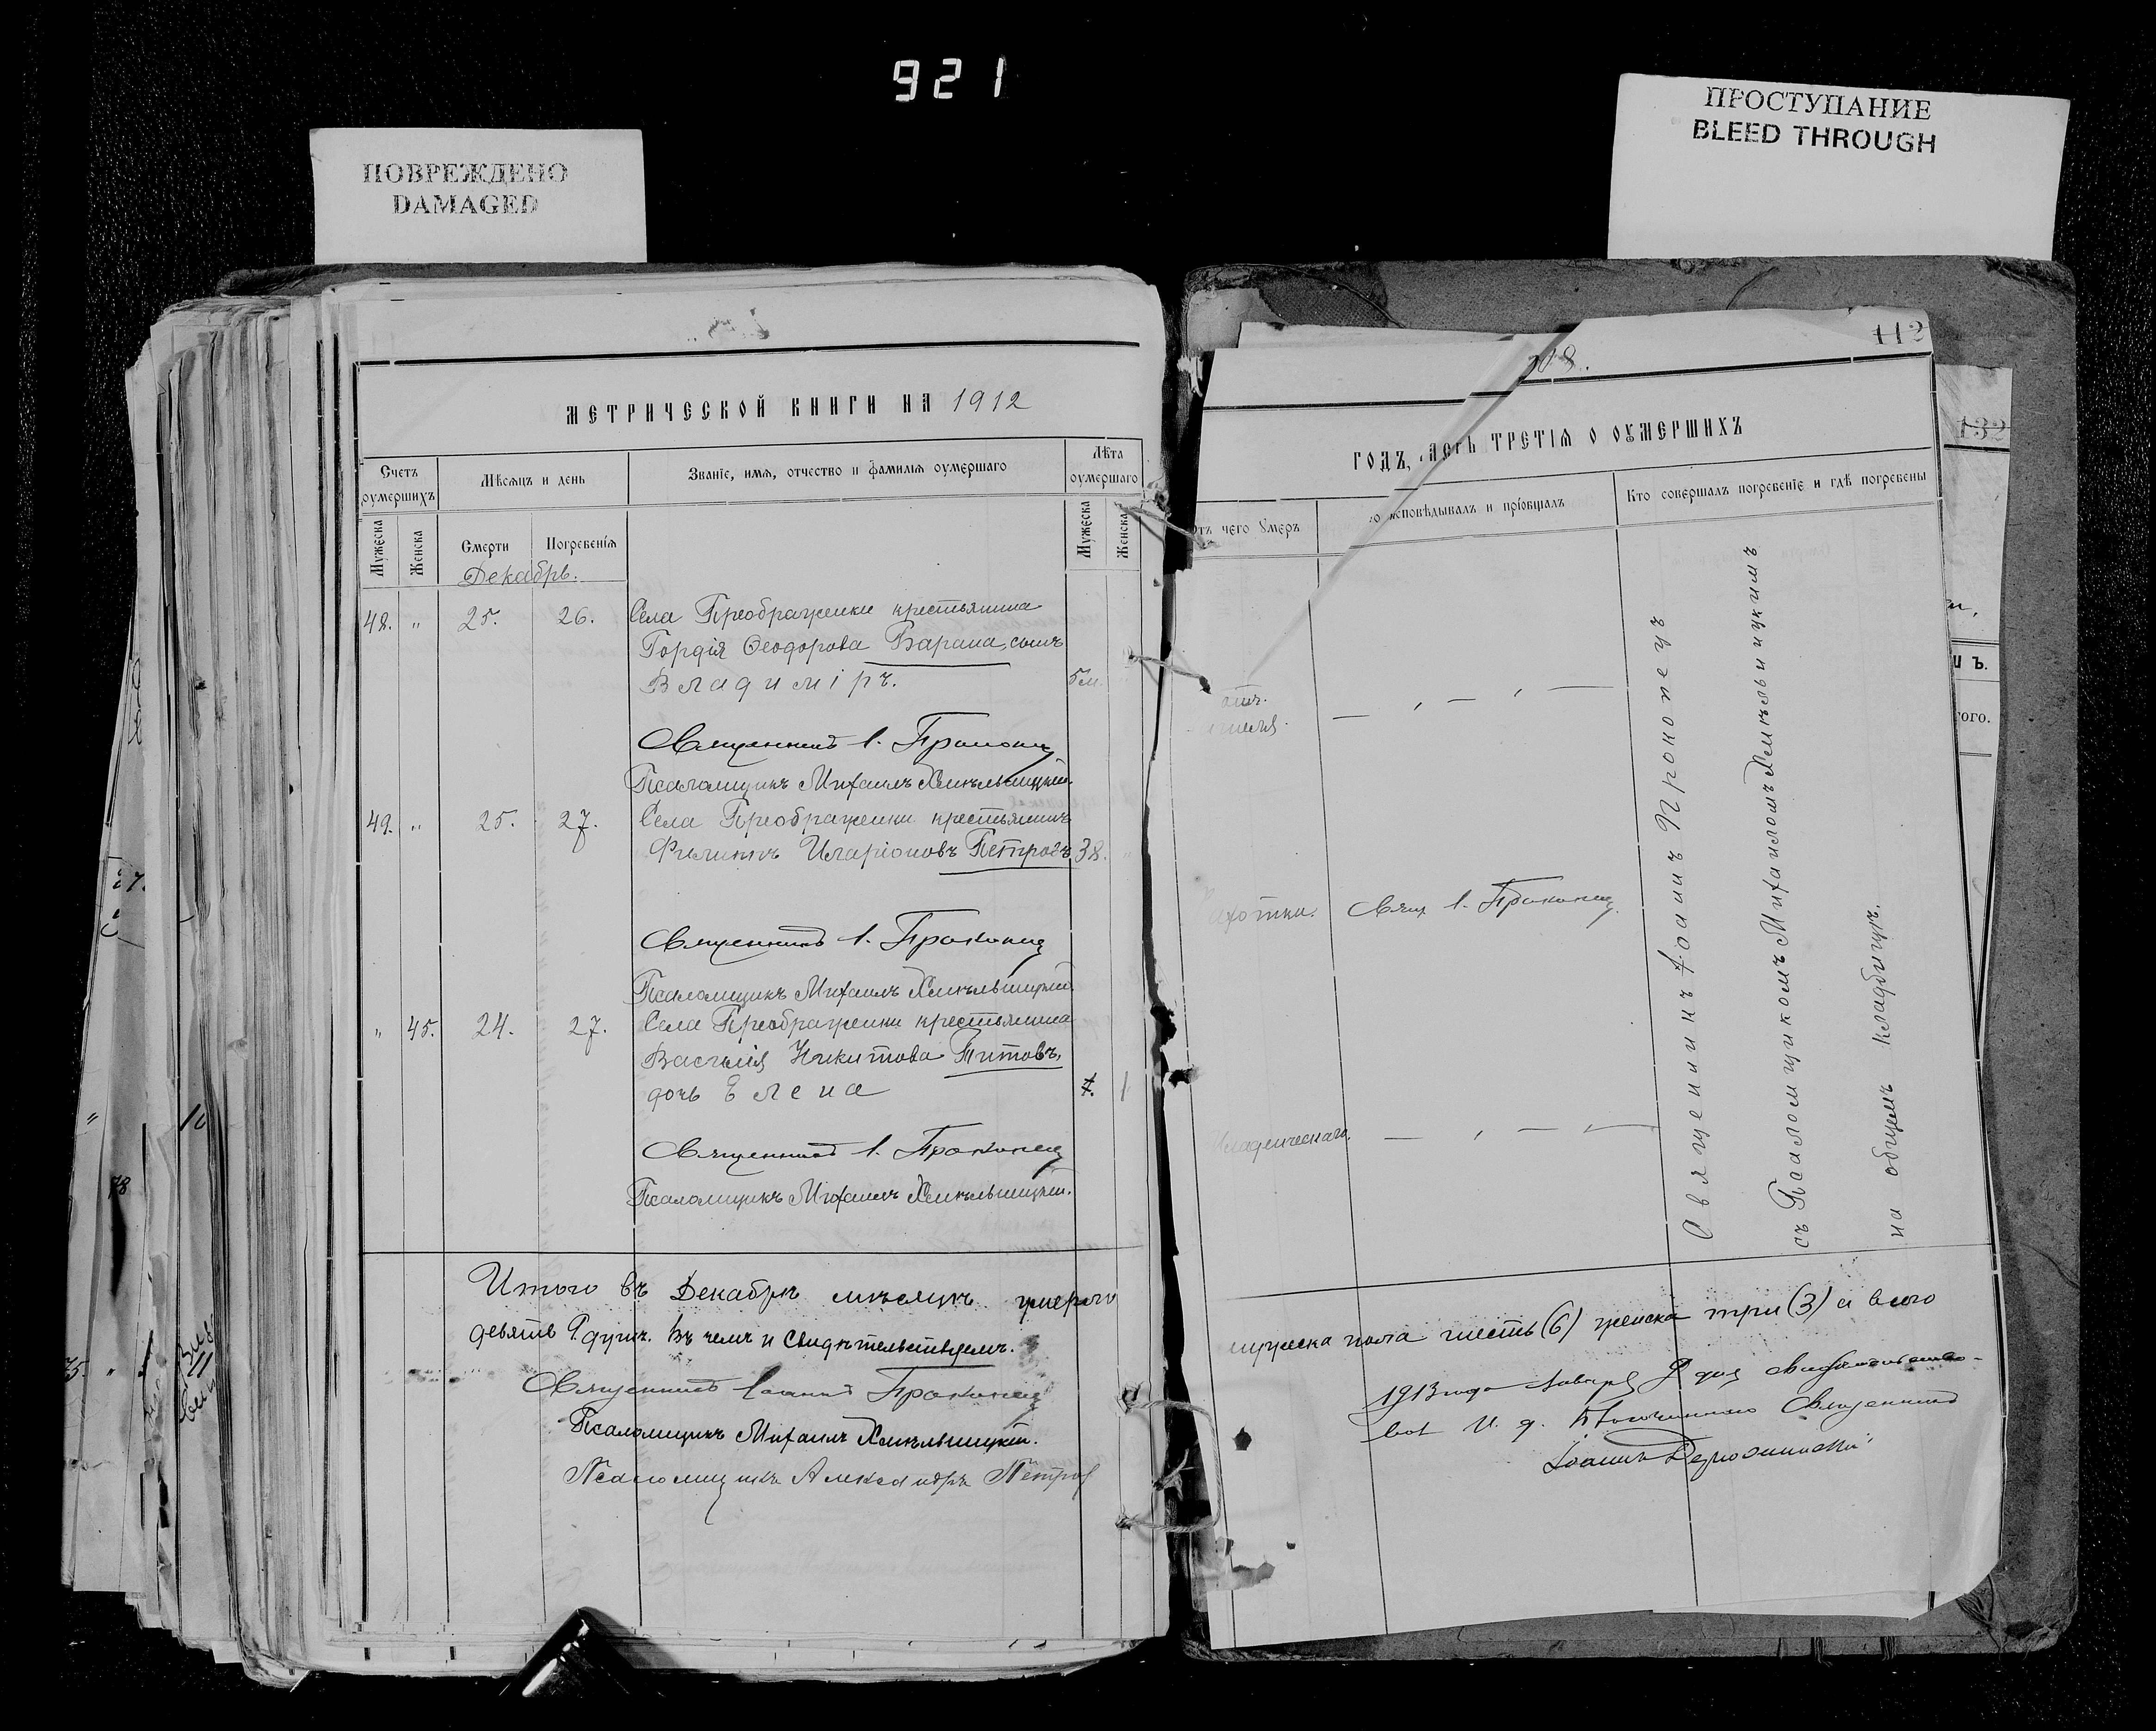 921
ПОВРЕЖДЕНО
DAMAGED
ПРОСТУПАНИЕ
BLEED THROUGH
МЕТРИЧЕСКОЙ КНИГИ НА 1912
Счетъ оумершихъ
Мѣсяцъ и день
Званіе, имя, отчество и фамилія оумершаго
Лѣта оумершаго
Мужеска
Женска
Смерти
Погребенія
Мужеска
Женска
Декабрь.
48. " 25. 26. Села Преображенки крестьянина
Гордія Ѳеодорова Варана, сынъ
Владиміръ. 5 м.
Священникъ І. Прокопец
Псаломщикъ Михаилъ Хмѣльницкій.
49. " 25. 27. Села Преображенки крестьянинъ
Филиппъ Иларіоновъ Петровъ 38.
Священникъ І. Прокопец
Псаломщикъ Михаилъ Хмѣльницкій
" 45. 24. 27. Села Преображенки крестьянина
Василія Никитова Титовъ,
дочь Елена 1
Священникъ І. Прокопец
Псаломщикъ Михаилъ Хмѣльницкій.
Итого въ Декабрѣ мѣсяцѣ умерло
девять 9 душъ. Въ чемъ и свидѣтельствуемъ.
Священникъ Іоаннъ Прокопец
Псаломщикъ Михаилъ Хмѣльницкій.
Псаломщикъ Александръ Петров
112
108.
ГОДЪ, ЧАСТЬ ТРЕТІЯ О ОУМЕРШИХЪ
отъ чего умеръ
исповѣдывалъ и пріобщалъ
Кто совершалъ погребеніе и гдѣ погребены
— , — , —
Чахотки. Свящ І. Прокопец.
Младенческаго. — , — , —
Священникъ Іоаннъ Прокопецъ
съ Псаломщикомъ Михаиломъ Хмѣльницкимъ
на общемъ кладбищѣ.
мужеска пола шесть (6) женска три (3) а всего
1913 года Января 9 дня свидѣтельство-
валъ И. д. Благочиннаго Священникъ
Іоаннъ
132
ого.